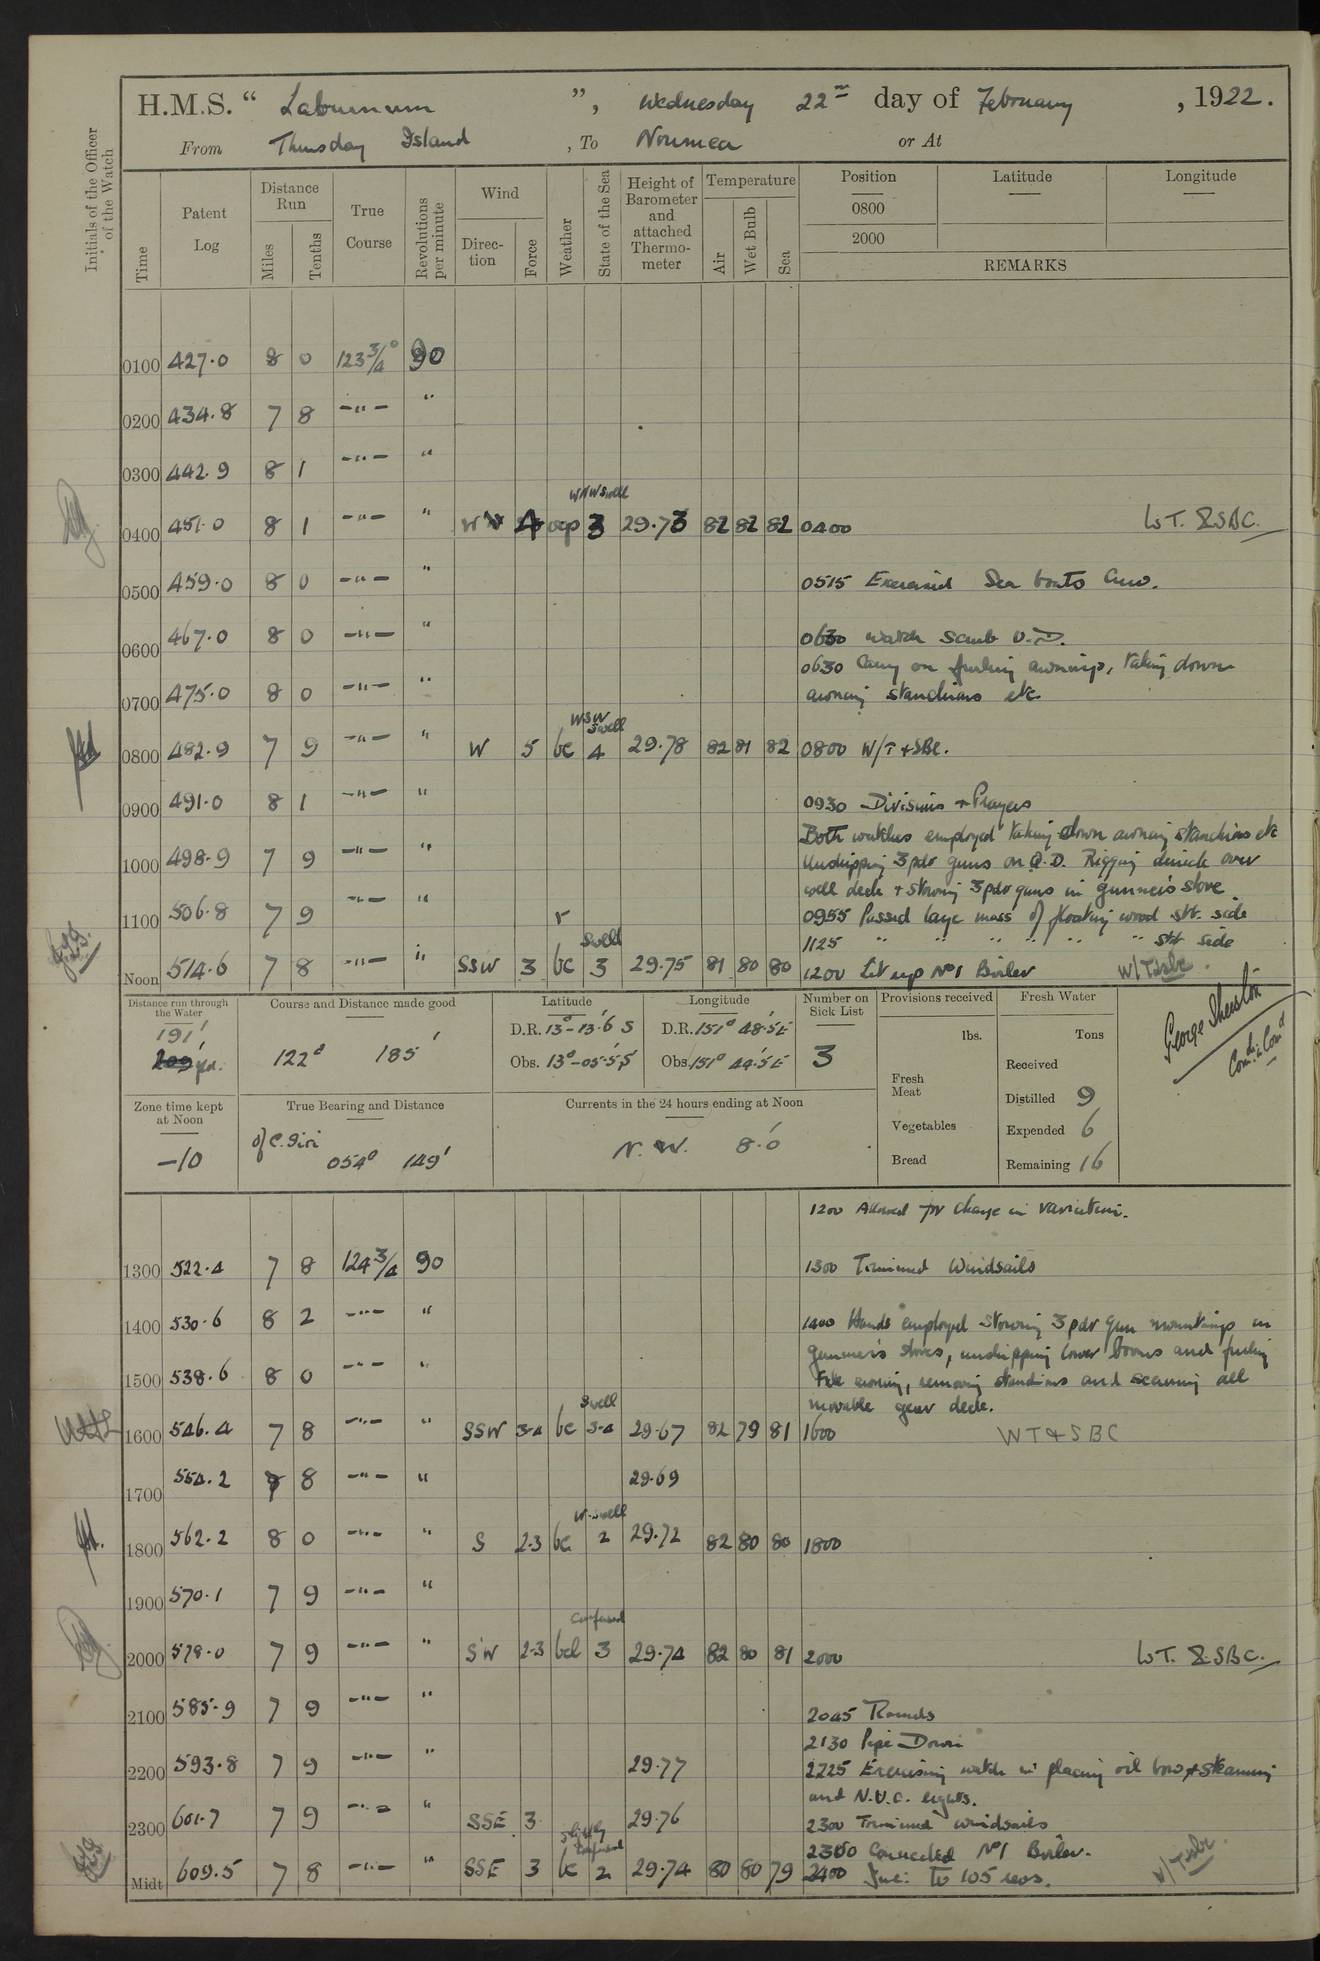 H.M.S. “ Laburnum ”, Wednesday 22nd day of February , 1922.
From Thursday Island , To Noumea or At
Initials of the Officer of the Watch
Time
Patent Log
Distance Run
Miles Tenths
True Course
Revolutions per minute
Wind
Direction Force
Weather
State of the Sea
Height of Barometer and attached Thermometer
Temperature
Air Wet Bulb Sea
Position Latitude Longitude
0800
2000
REMARKS
0100 427.0 8 0 123 3/4° 90
0200 434.8 7 8 -"- "
0300 442.9 8 1 -"- "
WNW swell
0400 451.0 8 1 -"- " 4 ocp 3 29.73 82 82 82 0400 W.T. & SBC.
0500 459.0 8 0 -"- " 0515 Exercised Sea boats Crew.
0600 467.0 8 0 -"- " 0630 watch scrub
0630 Carry on furling awnings, taking down
0700 475.0 8 0 -"- " awning stanchions etc
WSW swell
0800 482.9 7 9 -"- " W 5 bc 4 29.78 82 81 82 0800 W/T & SBC.
0900 491.0 8 1 -"- " 0930 Divisions & Prayers
Both watches employed taking down awning stanchions etc
1000 498.9 7 9 -"- " Unshipping 3 pdr guns on Q.D. Rigging derrick over
well deck & stowing 3 pdr guns in gunner's store
1100 506.8 7 9 -"- " r 0955 Passed large mass of floating wood stb. side
swell 1125 " " " " " " stb side
Noon 514.6 7 8 -"- " SSW 3 bc 3 29.75 81 80 80 1200 Lit up No1 Boiler W/T & SBC.
Distance run through the Water
191'
Course and Distance made good
122° 185'
Latitude
D.R. 13°-13.'6 S
Obs. 13°-05.'5 S
Longitude
D.R. 151° 48.'5 E
Obs. 151° 44.'5 E
Number on Sick List
3
Provisions received
lbs.
Fresh Meat
Vegetables
Bread
Fresh Water
Tons
Received
Distilled 9
Expended 6
Remaining 16
Zone time kept at Noon
-10
True Bearing and Distance
of C. Siri 054° 149'
Currents in the 24 hours ending at Noon
N.W. 8.'0
1200 Allowed for change in variation.
1300 522.4 7 8 124 3/4 90 1300 Trimmed Windsails
1400 530.6 8 2 -"- " 1400 Hands employed stowing 3 pdr gun mountings in
gunner's stores, unshipping lower booms and furling
1500 538.6 8 0 -"- " awning, removing stanchions and securing all
swell movable gear deck.
1600 546.4 7 8 -"- " SSW 3-4 bc 3-4 29.67 82 79 81 1600 WT & SBC
1700 554.2 7 8 -"- " 29.69
W. swell
1800 562.2 8 0 -"- " S 2.3 bc 2 29.72 82 80 80 1800
1900 570.1 7 9 -"- "
Confused
2000 578.0 7 9 -"- " SW 2.3 bcl 3 29.74 82 80 81 2000 W.T. & SBC.
2100 585.9 7 9 -"- " 2045 Rounds
2130 Pipe Down
2200 593.8 7 9 -"- " 29.77 2225 Exercising watch in placing oil bow & steaming
and N.U.C. lights.
2300 601.7 7 9 -"- " SSE 3 29.76 2300 Trimmed windsails
slightly confused 2350 Connected No1 Boiler.
Midt 609.5 7 8 -"- " SSE 3 bc 2 29.74 80 80 79 2400 Inc: to 105 revs. W/T & SBC